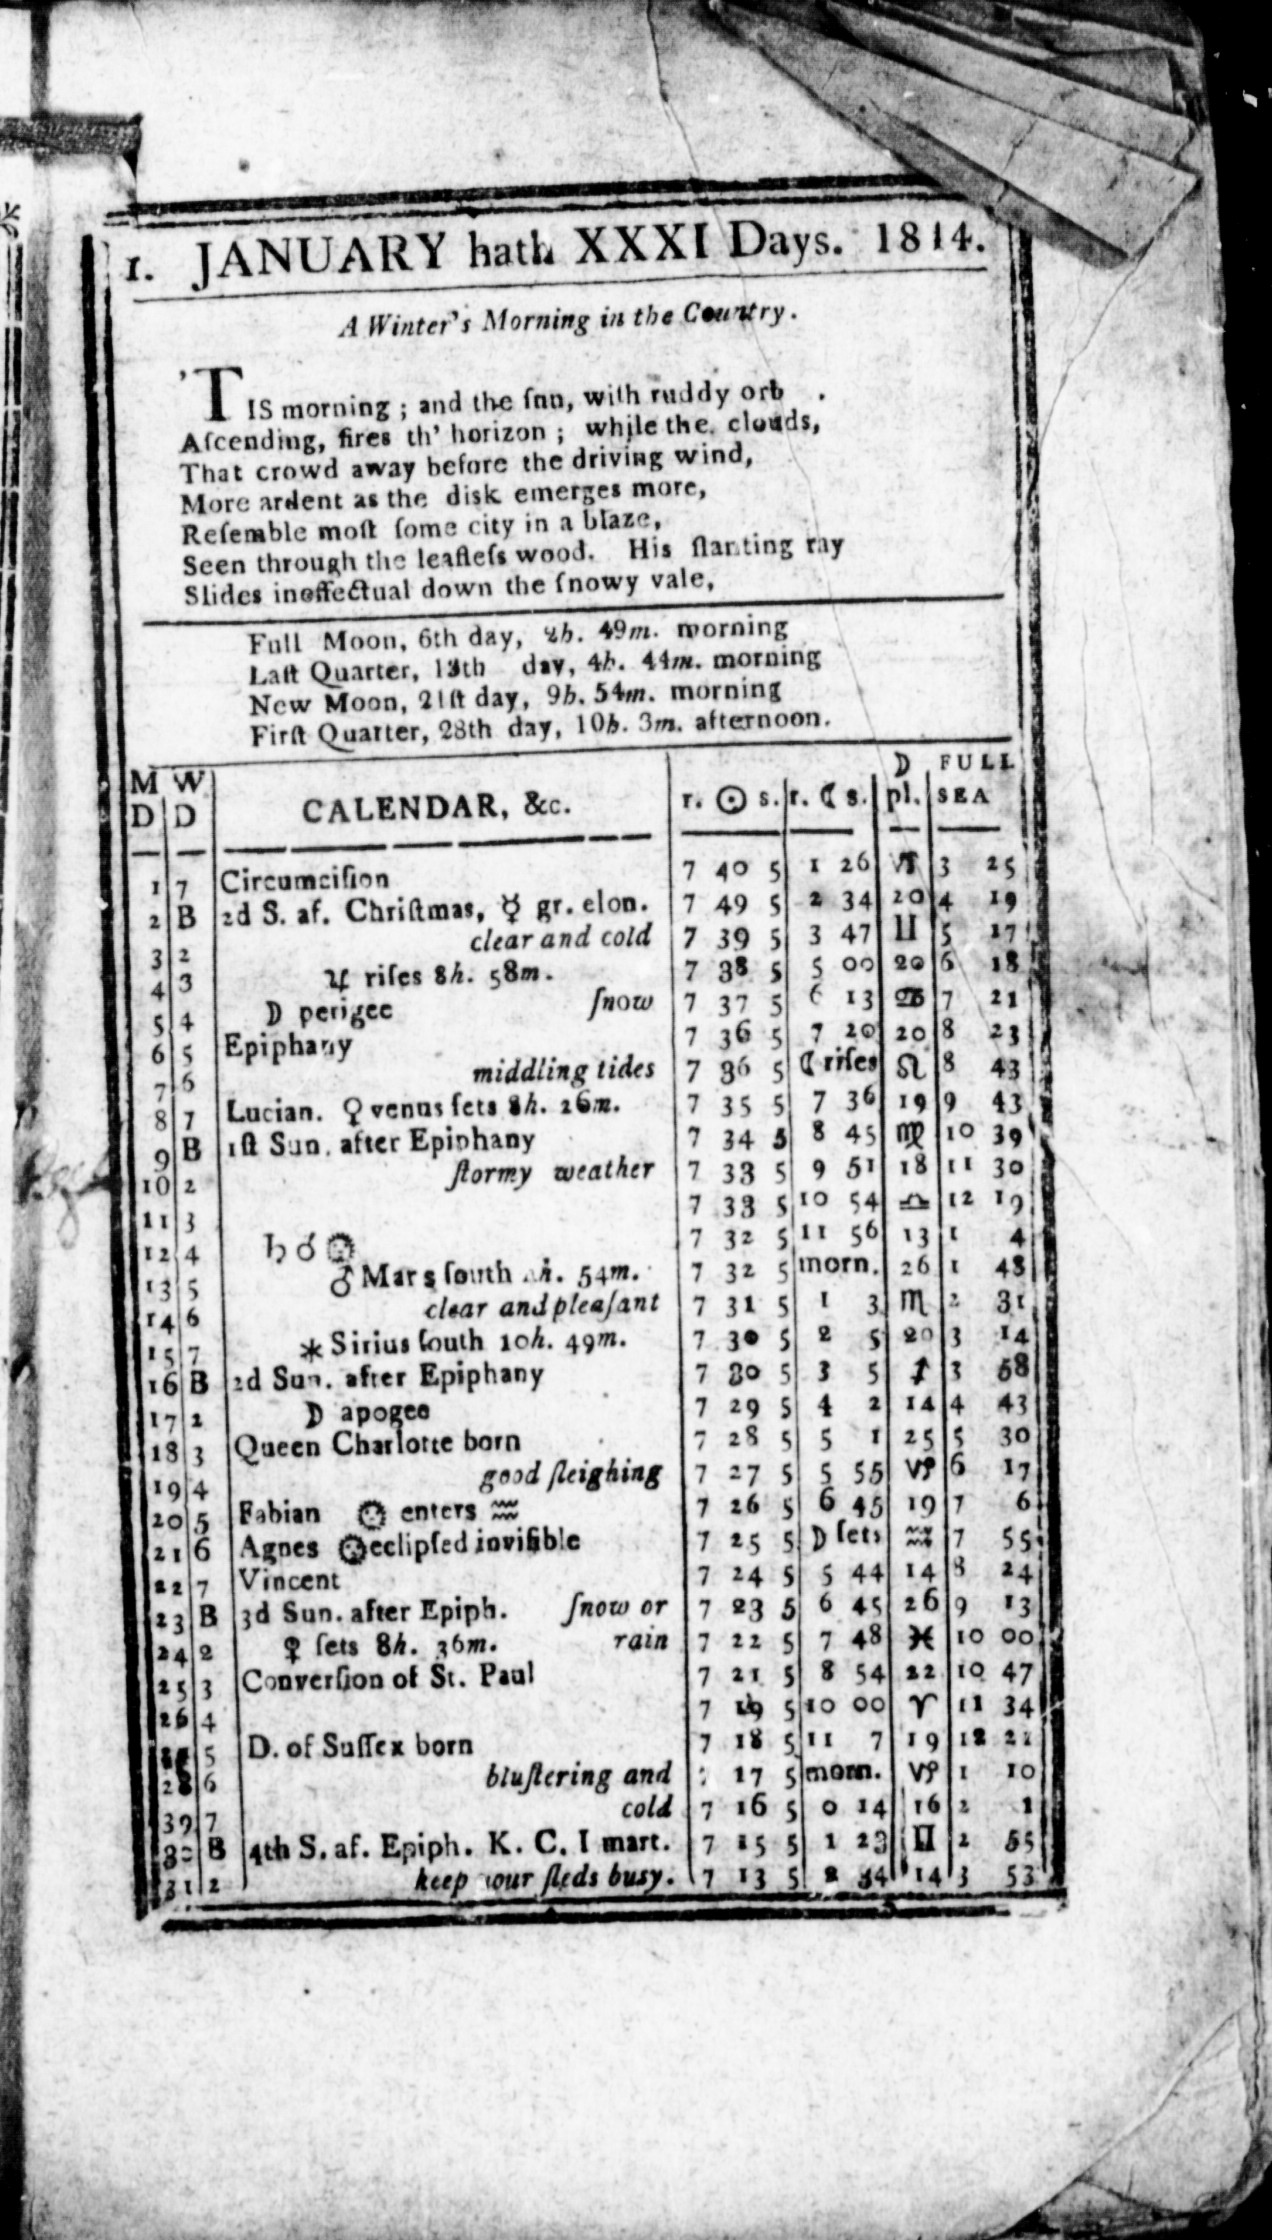 1. JANUARY hath XXXI Days. 1814.
A Winter's Morning in the Country.
'TIS morning ; and the ſnn, with ruddy orb
Aſcending, fires th' horizon ; while the. clouds,
That crowd away before the driving wind,
More ardent as the disk emerges more,
Reſemble moſt ſome city in a blaze,
Seen through the leafleſs wood. His ſlanting ray
Slides ineffectual down the ſnowy vale,
Full Moon, 6th day, 2h. 49m. morning
Laſt Quarter, 13th day, 4h. 44m. morning
New Moon, 21ſt day, 9h. 54m. morning
Firſt Quarter, 28th day, 10h. 3m. afternoon.
M D W D CALENDAR, &c. r. ☉ s. r. ☾ s. ☽ pl. FULL SEA
1 7 Circumciſion 7 40 5 1 26 3 25
2 B 2d S. af. Chriſtmas, ☿ gr. elon. 7 49 5 2 34 20 4 19
3 2 clear and cold 7 39 5 3 47 ♊ 5 17
4 3 ♃ riſes 8h. 58m. 7 38 5 5 00 20 6 18
5 4 ☽ perigee ſnow 7 37 5 6 13 ♋ 7 21
6 5 Epiphany 7 36 5 7 20 20 8 23
7 6 middling tides 7 36 5 ☾ riſes ♌ 8 43
8 7 Lucian. ♀ venus ſets 8h. 26m. 7 35 5 7 36 19 9 43
9 B 1ſt Sun. after Epiphany 7 34 5 8 45 ♍ 10 39
10 2 ſtormy weather 7 33 5 9 51 18 11 30
11 3 7 33 5 10 54 ♎ 12 19
12 4 ♄ ☌ ☉ 7 32 5 11 56 13 1 4
13 5 ♂ Mars ſouth h. 54m. 7 32 5 morn. 26 1 48
14 6 clear and pleaſant 7 31 5 1 3 ♏ 2 31
15 7 * Sirius ſouth 10h. 49m. 7 30 5 2 5 20 3 14
16 B 2d Sun. after Epiphany 7 30 5 3 5 ♐ 3 58
17 2 ☽ apogee 7 29 5 4 2 14 4 43
18 3 Queen Charlotte born 7 28 5 5 1 25 5 30
19 4 good ſleighing 7 27 5 5 55 ♑ 6 17
20 5 Fabian ☉ enters ♒ 7 26 5 6 45 19 7 6
21 6 Agnes ☉ eclipſed inviſible 7 25 5 ☽ ſets ♒ 7 55
22 7 Vincent 7 24 5 5 44 14 8 24
23 B 3d Sun. after Epiph. ſnow or 7 23 5 6 45 26 9 13
24 2 ♀ ſets 8h. 36m. rain 7 22 5 7 48 ♓ 10 00
25 3 Converſion of St. Paul 7 21 5 8 54 22 10 47
26 4 7 19 5 10 00 ♈ 11 34
5 D. of Suſſex born 7 18 5 11 7 19 12 21
28 6 bluſtering and 17 5 morn. ♑ 1 10
39 7 cold 7 16 5 0 14 16 2 1
30 B 4th S. af. Epiph. K. C. I mart. 7 15 5 1 23 ♊ 2 55
31 2 keep your ſleds busy. 7 13 5 2 34 14 3 53